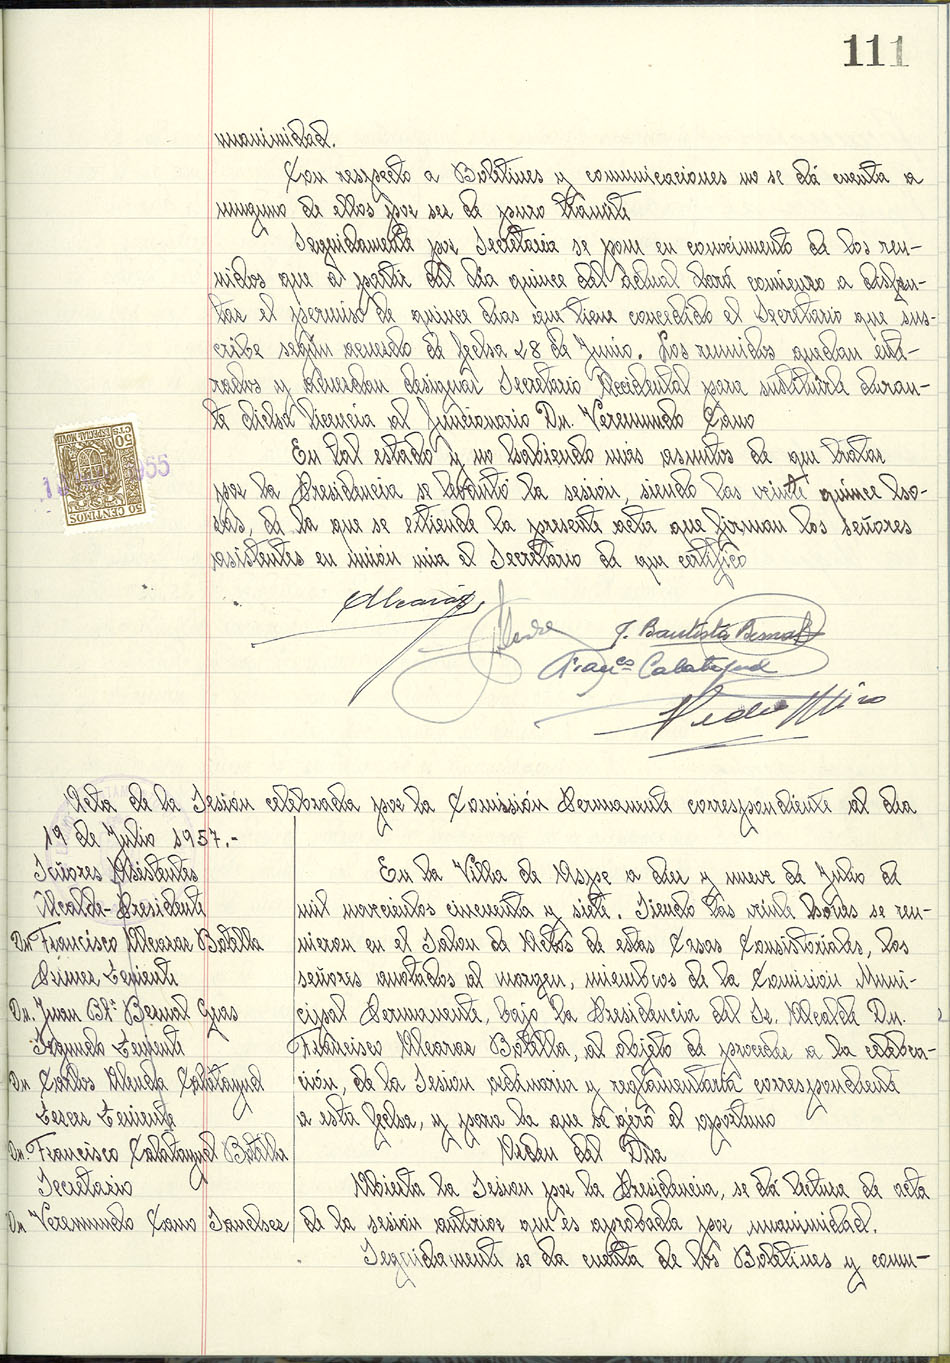 111
unanimidad.
Con respecto a Boletines y comunicaciones no se dá cuenta a
ninguno de ellos por ser de puro trámite
Seguidamente por Secretaria se pone en conocimiento de los reu-
nidos que al partir del día quince del actual dará comienzo a disfru-
tar el permiso de quince dias que tiene concedido el Secretario que sus-
cribe según acuerdo de fecha 28 de Junio. Los reunidos quedan ente-
rados y acuerdan designar Secretario Accidental para sustituirle duran-
te dicha licencia al funcionario Dn. Veremundo Cano
En tal estado y no habiendo más asuntos de que tratar
por la Presidencia se levantó la sesión, siendo las veinte quince ho-
ras, de la que se extiende la presente acta que firman los señores
asistentes en unión mia el Secretario de que certifico
50 CENTIMOS
50
CTS ESPECIAL MOVIL
1955
Alcaraz
J. Bautista Bernal
Franco Calatayud
Pedro Miro
Acta de la Sesion celebrada por la Comissión Permanente correspondiente al dia
19 de Julio 1957.-
Señores Asistentes
Alcalde-Presidente
Dn Francisco Alcaraz Botella
Primer Teniente
Dn. Juan Bta Bernal Gras
Segundo Teniente
Dn Carlos Calatayud
Tercer Teniente
Dn. Francisco Calatayud Botella
Secretario
Dn Veremundo Cano Sanchez
En la Villa de Aspe a diez y nueve de Julio de
mil novecientos cincuenta y siete. Siendo las veinte horas se reu-
nieron en el Salon de Actos de estas Casas Consistoriales, los
señores anotados al margen, miembros de la Comision Muni-
cipal Permanente, bajo la Presidencia del Sr. Alcalde Dn.
Francisco Alcaraz Botella, al objeto de proceder a la celebra-
ción, de la Sesion ordinaria y reglamentaria correspondiente
a esta fecha, y para la que se giró el oportuno
Orden del Dia
Abierta la Sesion por la Presidencia, se dá lectura de acta
de la sesión anterior que es aprobada por unanimidad.
Seguidamente se da cuenta de los Boletines y comu-